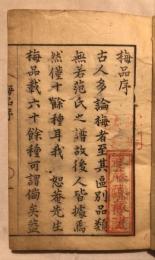 梅品序
古人多論梅者至其區別品類
無若范氏之譜故後人皆據焉
然僅十餘種耳我 恕菴先生
梅品載六十餘種可謂備矣蓋
梅品序